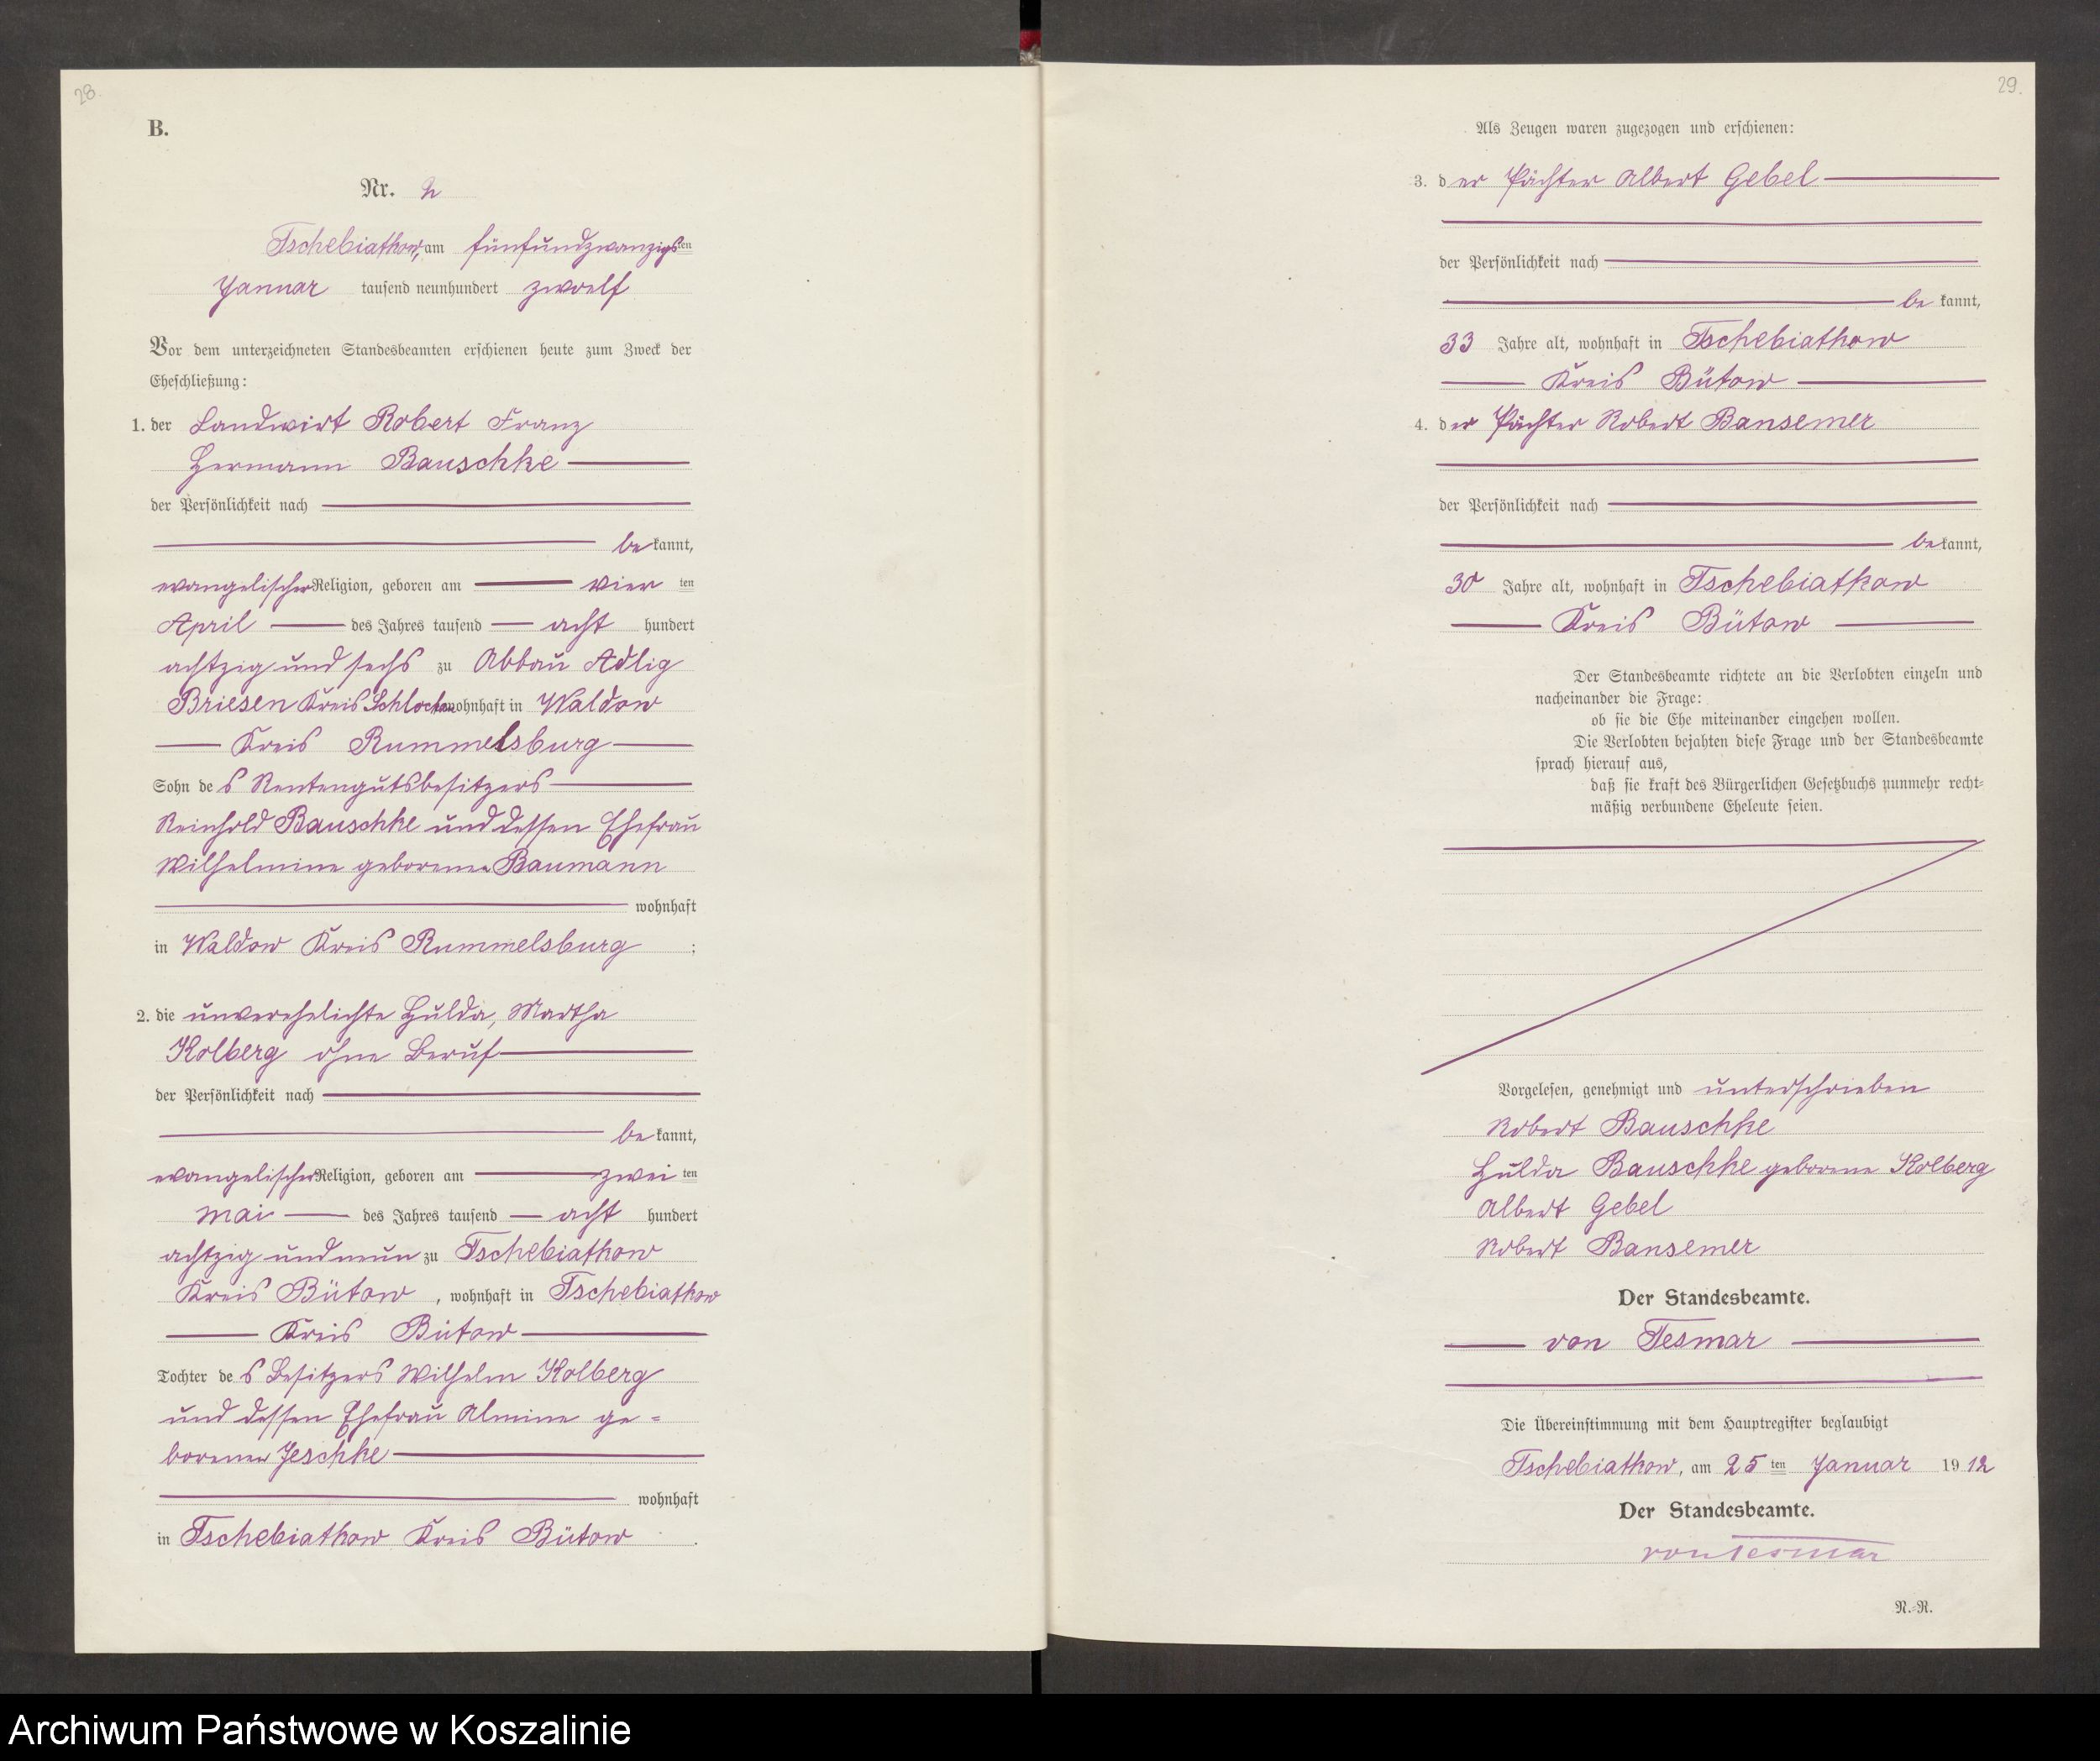 28.
B.
Nr. 2
Tschebiatkow, am fünfundzwanzigsten
Januar tausend neunhundert zwoelf
Vor dem unterzeichneten Standesbeamten erschienen heute zum Zweck der
Eheschließung:
1. der Landwirt Robert Franz
Hermann Bauschke
der Persönlichkeit nach
bekannt,
evangelischer Religion, geboren am vier ten
April des Jahres tausend acht hundert
achtzig und sechs zu Abbau Adlig
Briesen Kreis Schlochau wohnhaft in Waldow
Kreis Rummelsburg
Sohn des Rentengutsbesitzers
Reinhold Bauschke und dessen Ehefrau
Wilhelmine geborenen Baumann
wohnhaft
in Waldow Kreis Rummelsburg ;
2. die unverehelichte Hulda, Martha
Kolberg ohne Beruf
der Persönlichkeit nach
bekannt,
evangelischer Religion, geboren am zwei ten
Mai des Jahres tausend acht hundert
achtzig und neun zu Tschebiatkow
Kreis Bütow , wohnhaft in Tschebiatkow
Kreis Bütow
Tochter des Besitzers Wilhelm Kolberg
und dessen Ehefrau Almine ge=
borenen Jeschke
wohnhaft
in Tschebiatkow Kreis Bütow .
29.
Als Zeugen waren zugezogen und erschienen:
3. der Pächter Albert Gebel
der Persönlichkeit nach
bekannt,
33 Jahre alt, wohnhaft in Tschebiatkow
Kreis Bütow
4. der Pächter Robert Bansemer
der Persönlichkeit nach
bekannt,
30 Jahre alt, wohnhaft in Tschebiatkow
Kreis Bütow
Der Standesbeamte richtete an die Verlobten einzeln und
nacheinander die Frage:
ob sie die Ehe miteinander eingehen wollen.
Die Verlobten bejahten diese Frage und der Standesbeamte
sprach hierauf aus,
daß sie kraft des Bürgerlichen Gesetzbuchs nunmehr recht=
mäßig verbundene Eheleute seien.
Vorgelesen, genehmigt und unterschrieben
Robert Bauschke
Hulda Bauschke geborene Kolberg
Albert Gebel
Robert Bansemer
Der Standesbeamte.
von Tesmar
Die Übereinstimmung mit dem Hauptregister beglaubigt
Tschebiatkow, am 25 ten Januar 1912
Der Standesbeamte.
von Tesmar
N.=R.
Archiwum Państwowe w Koszalinie